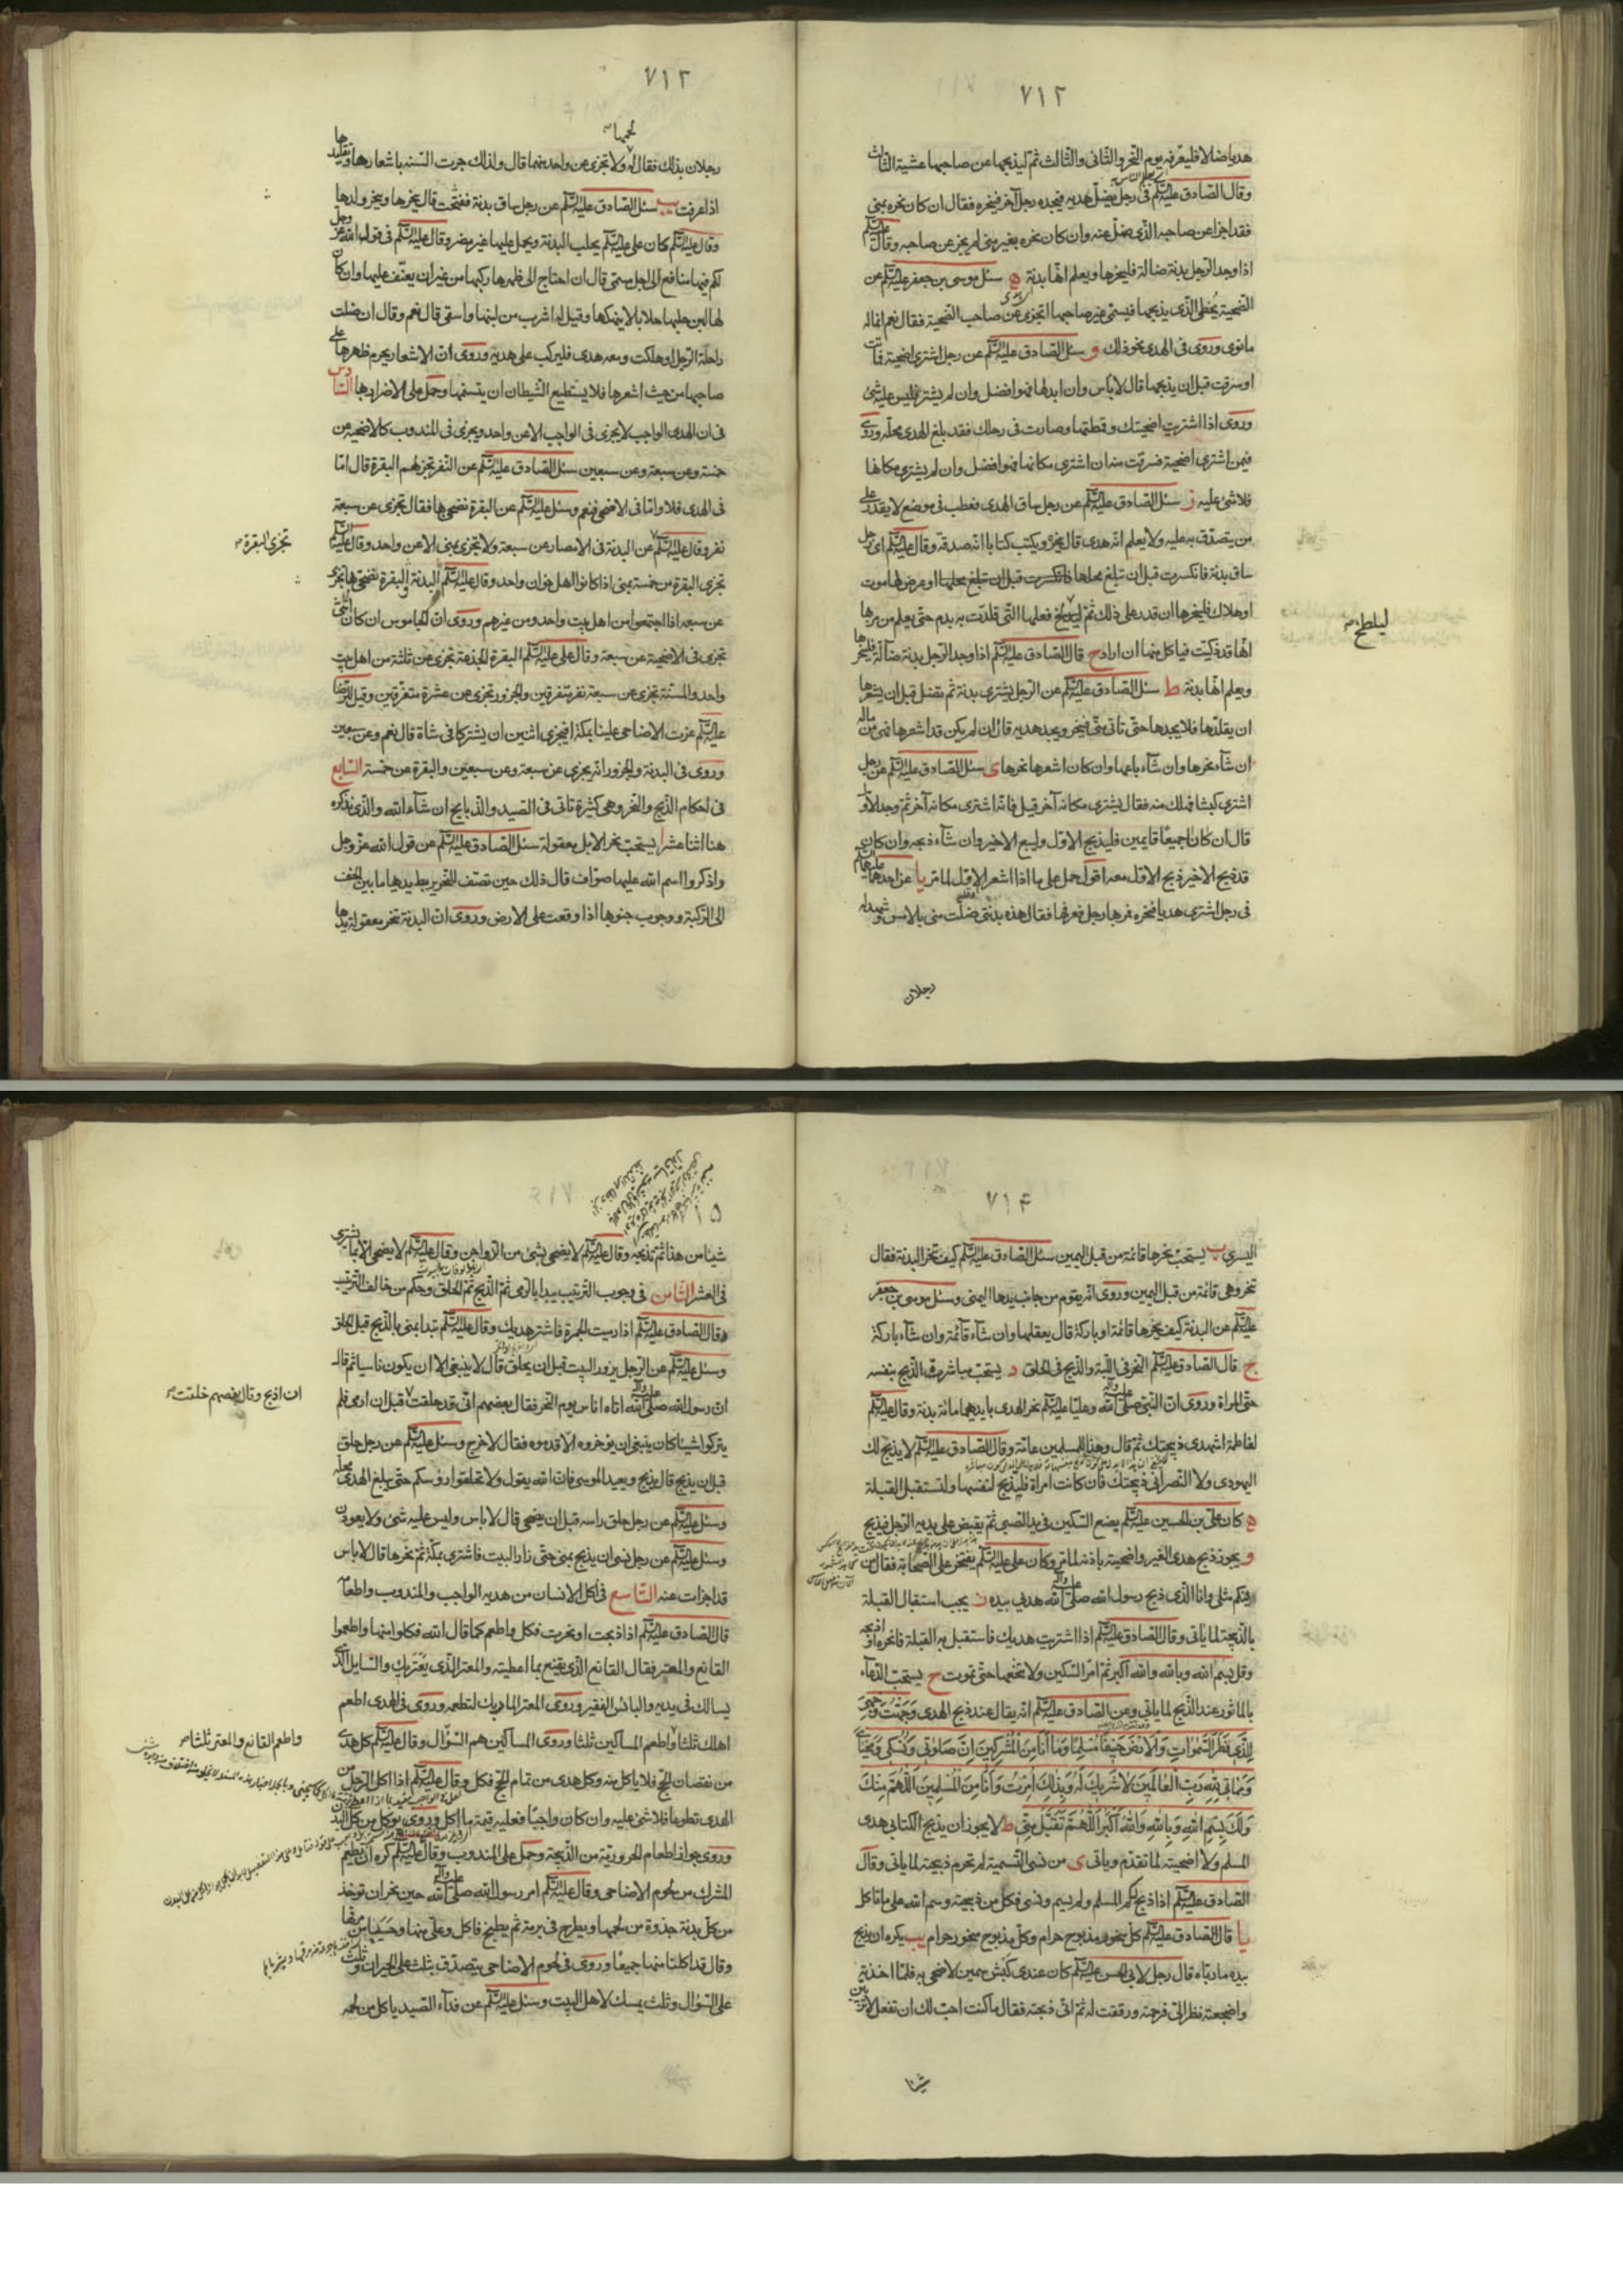 ٧١٢
هديا ضالا فليعرفه يوم النحر والثاني والثالث ثم ليذبحها عن صاحبها عشية الثالث
وقال الصادق عليه السلم في رجل يضل هديه فيجده رجل آخر فينحره فقال ان كان نحره بمنى
فقد اجزا عن صاحبه الذي ضل عنه وان كان نحره بغير منى لم يجز عن صاحبه وقال عليه السلم
اذا وجد الرجل بدنة ضالة فلينحرها ويعلم انها بدنة ه سئل موسى بن جعفر عليه السلم عن
الضحية يخطي الذي يذبحها فيسمي غير صاحبها اتجزي عن صاحب الضحية فقال نعم انما له
ما نوى وروى في الهدى نحو ذلك و سئل الصادق عليه السلم عن رجل اشترى اضحية فماتت
او سرقت قبل ان يذبحها قال لا باس وان ابدلها فهو افضل وان لم يشتر فليس عليه شئ
وروى اذا اشتريت اضحيتك وقمطتها وصارت في رحلك فقد بلغ الهدى محله وروى
فيمن اشترى اضحية فسرقت منه ان اشترى مكانها فهو افضل وان لم يشترى مكانها
فلا شئ عليه ز سئل الصادق عليه السلم عن رجل ساق الهدى فعطب في موضع لا يقدر على
من يتصدق به عليه ولا يعلم انه هدى قال ينحره ويكتب كتابا انه صدقة وقال عليه السلم اى رجل
ساق بدنة فانكسرت قبل ان تبلغ محلها او عرض لها موت
او هلاك فلينحرها ان قدر على ذلك ثم نعلها التي قلدت به بدم حتى يعلم من مر بها
ليلطخ
انها قد ذكيت فياكل منها ان اراد ح قال الصادق عليه السلم اذا وجد الرجل بدنة ضالة فلينحرها
ويعلم انها بدنة ط سئل الصادق عليه السلم عن الرجل يشترى بدنة ثم تضل قبل ان يشعرها
ان يقلدها فلا يجدها حتى تاتي منى فينحر ويجد هديه قال ان لم يكن قد اشعرها فهي من ماله
ان شاء نحرها وان شاء باعها وان كان اشعرها نحرها ى سئل الصادق عليه السلم عن رجل
اشترى كبشا فهلك منه فقال يشترى مكانه آخر قيل فانه اشترى مكانه آخر ثم وجد الاول
قال ان كانا جميعا قايمين فليذبح الاول وليبع الاخير وان شاء ذبحه وان كان
قد ذبح الاخير ذبح الاول معه اقول حمل على ما اذا اشعر الاول لما مر يا عن احدهما عليهما السلم
في رجل اشترى هديا فنحره فمر بها رجل فعرفها فقال هذه بدنتي ضلت مني بالامس وشهد له
رجلان
٧١٣
رجلان بذلك فقال له ولا تجزى عن واحد منهما قال ولذلك جرت السنة باشعارها وتقليدها
لحمها
اذا عرفت يب سئل الصادق عليه السلم عن رجل ساق بدنة فنتجت قال ينحرها وينحر ولدها
وقال عليه السلم كان على عليه السلم يحلب البدنة ويحمل عليها غير مضر وقال عليه السلم في قول الله عز وجل
لكم فيها منافع الى اجل مسمى قال ان احتاج الى ظهرها ركبها من غير ان يعنف عليها وان كان
لها لبن حلبها حلابا لا ينهكها وقيل له اشرب من لبنها واسقى قال نعم وقال ان ضلت
راحلة الرجل او هلكت ومعه هدى فليركب على هديه وروى ان الاشعار يحرم ظهرها على
صاحبها من حيث اشعرها فلا يستطيع الشيطان ان يتسنمها وحمل على الاضرار بها السادس
في ان الهدى الواجب لا يجزى في الواجب الا عن واحد ويجزى في المندوب كالاضحية عن
خمسة وعن سبعة وعن سبعين سئل الصادق عليه السلم عن النفر تجزيهم البقرة قال اما
في الهدى فلا واما في الاضحى فنعم وسئل عليه السلم عن البقرة نضحى بها فقال تجزى عن سبعة
نفر وقال عليه السلم عن البدنة في الامصار عن سبعة ولا تجزى بمنى الا عن واحد وقال عليه السلم
تجزى البقرة
تجزى البقرة عن خمسة بمنى اذا كانوا اهل خوان واحد وقال عليه السلم البدنة والبقرة نضحى بها تجزى
عن سبعة اذا اجتمعوا من اهل بيت واحد ومن غيرهم وروى ان الجاموس ان كان انثى
تجزى في الاضحية عن سبعة وقال على عليه السلم البقرة الجذعة تجزى عن ثلثة من اهل بيت
واحد والمسنة تجزى عن سبعة نفر متفرقين والجزور تجزى عن عشرة متفرقين وقيل للرضا
عليه السلم عزت الاضاحى علينا بمكة افيجزى اثنين ان يشتركا في شاة قال نعم وعن سبعين
وروى في البدنة والجزور انه يجزى عن سبعة وعن سبعين والبقرة عن خمسة السابع
في احكام الذبح والنحر وهى كثيرة تاتى في الصيد والذبايح ان شاء الله والذى نذكره
هنا اثنا عشر ا يستحب نحر الابل معقولة سئل الصادق عليه السلم عن قول الله عز وجل
واذكروا اسم الله عليها صواف قال ذلك حين تصف للنحر يربط يديها ما بين الخف
الى الركبة ووجوب جنوبها اذا وقعت على الارض وروى ان البدنة تنحر معقولة يدها
٧١۴
اليسرى ب يستحب نحرها قائمة من قبل اليمين سئل الصادق عليه السلم كيف تنحر البدنة فقال
تنحر وهى قائمة من قبل اليمين وروى انه يقوم من جانب يدها اليمنى وسئل موسى بن جعفر
عليه السلم عن البدنة كيف ينحرها قائمة او باركة قال يعقلها وان شاء قائمة وان شاء باركة
ج قال الصادق عليه السلم النحر في اللبة والذبح في الحلق د يستحب مباشرة الذبح بنفسه
حتى المراة وروى ان النبي صلى الله عليه وآله وعليا عليه السلم نحر الهدى بايديهما مائة بدنة وقال عليه السلم
لفاطمة اشهدى ذبيحتك ثم قال وهذا للمسلمين عامة وقال الصادق عليه السلم لا يذبح لك
اليهودى ولا النصراني ذبيحتك فان كانت امراة فلتذبح لنفسها ولتستقبل القبلة
ه كان على بن الحسين عليه السلم يضع السكين في يد الصبي ثم يقبض على يديه الرجل فيذبح
و يجوز ذبح هدى الغير واضحيته باذنه لما مر وكان على عليه السلم يفتخر على الصحابة فقال من
فيكم مثلى وانا الذى ذبح رسول الله صلى الله عليه وآله هديى بيده ز يجب استقبال القبلة
بالذبيحة لما ياتي وقال الصادق عليه السلم اذا اشتريت هديك فاستقبل به القبلة فانحره او اذبحه
وقل بسم الله وبالله والله اكبر ثم امر السكين ولا تنخعها حتى تموت ح يستحب الدعاء
بالماثور عند الذبح لما ياتي وعن الصادق عليه السلم انه يقال عند ذبح الهدى وجهت وجهى
للذى فطر السموات والارض حنيفا مسلما وما انا من المشركين ان صلوتى ونسكى ومحياى
ومماتى لله رب العالمين لا شريك له وبذلك امرت وانا من المسلمين اللهم منك
ولك بسم الله وبالله والله اكبر اللهم تقبل مني ط لا يجوز ان يذبح الكتابى هدى
المسلم ولا اضحيته لما تقدم وياتي ى من نسى التسمية لم تحرم ذبيحته لما ياتي وقال
الصادق عليه السلم اذا ذبح لكم المسلم ولم يسم ونسى فكل من ذبيحته وسم الله على ما تاكل
يا قال الصادق عليه السلم كل منحور مذبوح حرام وكل مذبوح منحور حرام يب يكره ان يذبح
بيده ما رباه قال رجل لابي الحسن عليه السلم كان عندى كبش سمين لاضحى به فلما اخذته
واضجعته نظر الى فرحمته ورققت له ثم انى ذبحته فقال ما كنت احب لك ان تفعل لا تربين
شيئا
١٥
شيئا من هذا ثم تذبحه وقال عليه السلم لا يضحى بشئ من الدواجن وقال عليه السلم لا يضحى الا بما يشترى
في العشر الثامن في وجوب الترتيب يبدا بالرمى ثم الذبح ثم الحلق وحكم من خالف الترتيب
قال الصادق عليه السلم اذا رميت الجمرة فاشتر هديك وقال عليه السلم تبدا بمنى بالذبح قبل الحلق
وسئل عليه السلم عن الرجل يزور البيت قبل ان يحلق قال لا ينبغى الا ان يكون ناسيا ثم قال
ان رسول الله صلى الله عليه وآله اتاه اناس يوم النحر فقال بعضهم انى قد حلقت قبل ان ارمى فلم
ان اذبح وقال بعضهم حلقت
يتركوا شيئا كان ينبغى ان يؤخروه الا قدموه فقال لا حرج وسئل عليه السلم عن رجل حلق
قبل ان يذبح قال يذبح ويعيد الموسى فان الله يقول ولا تحلقوا رؤسكم حتى يبلغ الهدى محله
وسئل عليه السلم عن رجل حلق راسه قبل ان يضحى قال لا باس وليس عليه شئ ولا يعودن
وسئل عليه السلم عن رجل نسى ان يذبح بمنى حتى زار البيت فاشترى بمكة ثم نحرها قال لا باس
قد اجزات عنه التاسع في اكل الانسان من هديه الواجب والمندوب واطعام
قال الصادق عليه السلم اذا ذبحت او نحرت فكل واطعم كما قال الله فكلوا منها واطعموا
القانع والمعتر فقال القانع الذى يقنع بما اعطيته والمعتر الذى يعتريك والسايل الذى
يسالك في يديه والبائس الفقير وروى المعتر المار بك لتطعمه وروى في الهدى اطعم
اهلك ثلثا واطعم المساكين ثلثا وروى المساكين هم السؤال وقال عليه السلم كل هدى
واطعم القانع والمعتر ثلثا
من نقصان الحج فلا ياكل منه وكل هدى من تمام الحج فكل وقال عليه السلم اذا اكل الرجل من
الهدى تطوعا فلا شئ عليه وان كان واجبا فعليه قيمة ما اكل وروى يؤكل من كل البدن
وروى جواز اطعام الحرورية من الذبيحة وحمل على المندوب وقال عليه السلم كره ان يطعم
المشرك من لحوم الاضاحى وقال عليه السلم امر رسول الله صلى الله عليه وآله حين نحر ان تؤخذ
من كل بدنة جذوة من لحمها ويطرح في برمة ثم يطبخ فاكل وعلى منها وحسيا من مرقها
وقال قد اكلنا منها جميعا وروى في لحوم الاضاحى يتصدق بثلث على الجيران وثلث
على السؤال وثلث يمسك لاهل البيت وسئل عليه السلم عن فداء الصيد ياكل من لحمه